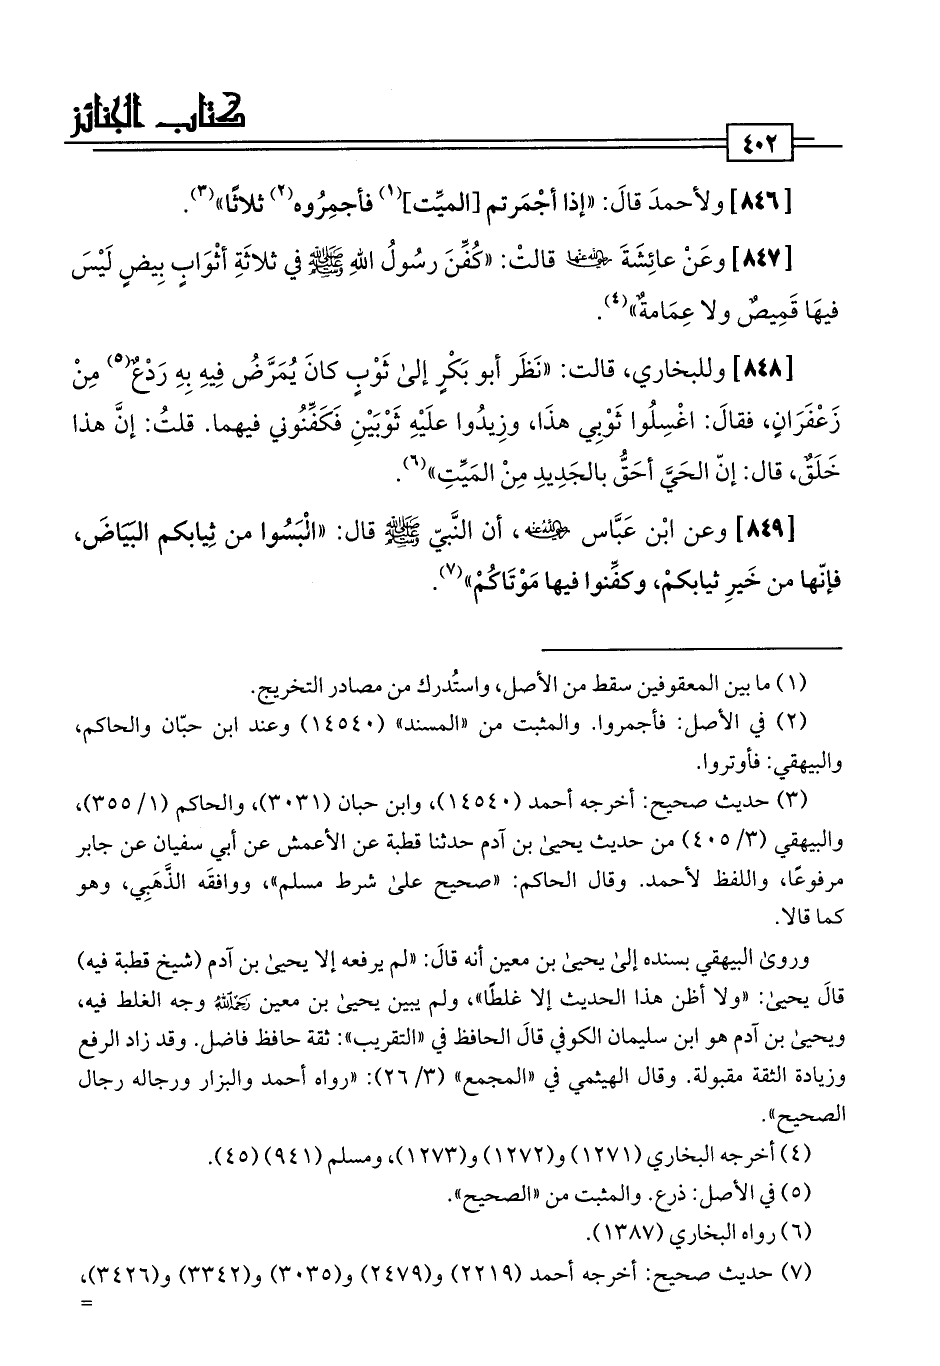 كتاب الجنائز
٤٠٢
[٨٤٦] ولأحمدَ قالَ: «إذا أجْمَرتم [الميِّت](١) فأجمِرُوه(٢) ثلاثًا»(٣).
[٨٤٧] وعَنْ عائِشَةَ رضي الله عنها قالتْ: «كُفِّنَ رسُولُ اللهِ ﷺ في ثلاثةِ أثْوَابٍ بيضٍ لَيْسَ
فيهَا قَمِيصٌ ولا عِمَامةٌ»(٤).
[٨٤٨] وللبخاري، قالت: «نَظَر أبو بَكْرٍ إلىٰ ثَوْبٍ كانَ يُمَرَّضُ فيهِ بِهِ رَدْعٌ(٥) مِنْ
زَعْفَرَانٍ، فقالَ: اغْسِلُوا ثَوْبِي هذَا، وزِيدُوا علَيْهِ ثَوْبَيْنِ فَكَفِّنُوني فيهما. قلتُ: إنَّ هذا
خَلَقٌ، قال: إنّ الحَيَّ أحَقُّ بالجَدِيدِ مِنْ المَيِّتِ»(٦).
[٨٤٩] وعن ابْن عَبَّاس رضي الله عنه، أن النَّبيّ ﷺ قال: «الْبَسُوا من ثِيابكم البَيَاضَ،
فإنّها من خَيرِ ثيابكمْ، وكفِّنوا فيها مَوْتَاكُمْ»(٧).
(١) ما بين المعقوفين سقط من الأصل، واستُدرك من مصادر التخريج.
(٢) في الأصل: فأجمروا. والمثبت من «المسند» (١٤٥٤٠) وعند ابن حبّان والحاكم،
والبيهقي: فأوتروا.
(٣) حديث صحيح: أخرجه أحمد (١٤٥٤٠)، وابن حبان (٣٠٣١)، والحاكم (١/ ٣٥٥)،
والبيهقي (٣/ ٤٠٥) من حديث يحيىٰ بن آدم حدثنا قطبة عن الأعمش عن أبي سفيان عن جابر
مرفوعًا، واللفظ لأحمد. وقال الحاكم: «صحيح علىٰ شرط مسلم»، ووافقَه الذَّهَبِي، وهو
كما قالا.
وروىٰ البيهقي بسنده إلىٰ يحيىٰ بن معين أنه قالَ: «لم يرفعه إلا يحيىٰ بن آدم (شيخ قطبة فيه)
قالَ يحيىٰ: «ولا أظن هذا الحديث إلا غلطًا»، ولم يبين يحيىٰ بن معين رحمه الله وجه الغلط فيه،
ويحيىٰ بن آدم هو ابن سليمان الكوفي قالَ الحافظ في «التقريب»: ثقة حافظ فاضل. وقد زاد الرفع
وزيادة الثقة مقبولة. وقال الهيثمي في «المجمع» (٣/ ٢٦): «رواه أحمد والبزار ورجاله رجال
الصحيح».
(٤) أخرجه البخاري (١٢٧١) و(١٢٧٢) و(١٢٧٣)، ومسلم (٩٤١) (٤٥).
(٥) في الأصل: ذرع. والمثبت من «الصحيح».
(٦) رواه البخاري (١٣٨٧).
(٧) حديث صحيح: أخرجه أحمد (٢٢١٩) و(٢٤٧٩) و(٣٠٣٥) و(٣٣٤٢) و(٣٤٢٦)،
=